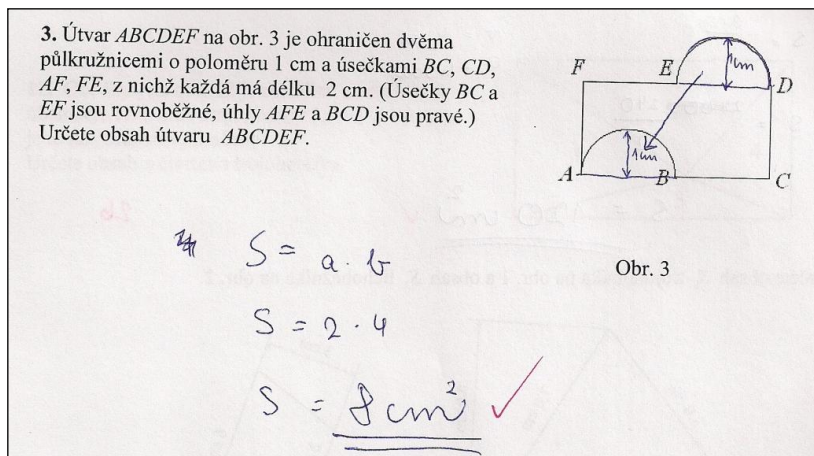 3. Útvar ABCDEF na obr. 3 je ohraničen dvěma
půlkružnicemi o poloměru 1 cm a úsečkami BC, CD,
AF, FE, z nichž každá má délku 2 cm. (Úsečky BC a
EF jsou rovnoběžné, úhly AFE a BCD jsou pravé.)
Určete obsah útvaru ABCDEF.
F E 1cm D
A 1cm B C
Obr. 3
S = a . b
S = 2 · 4
S = 8 cm²